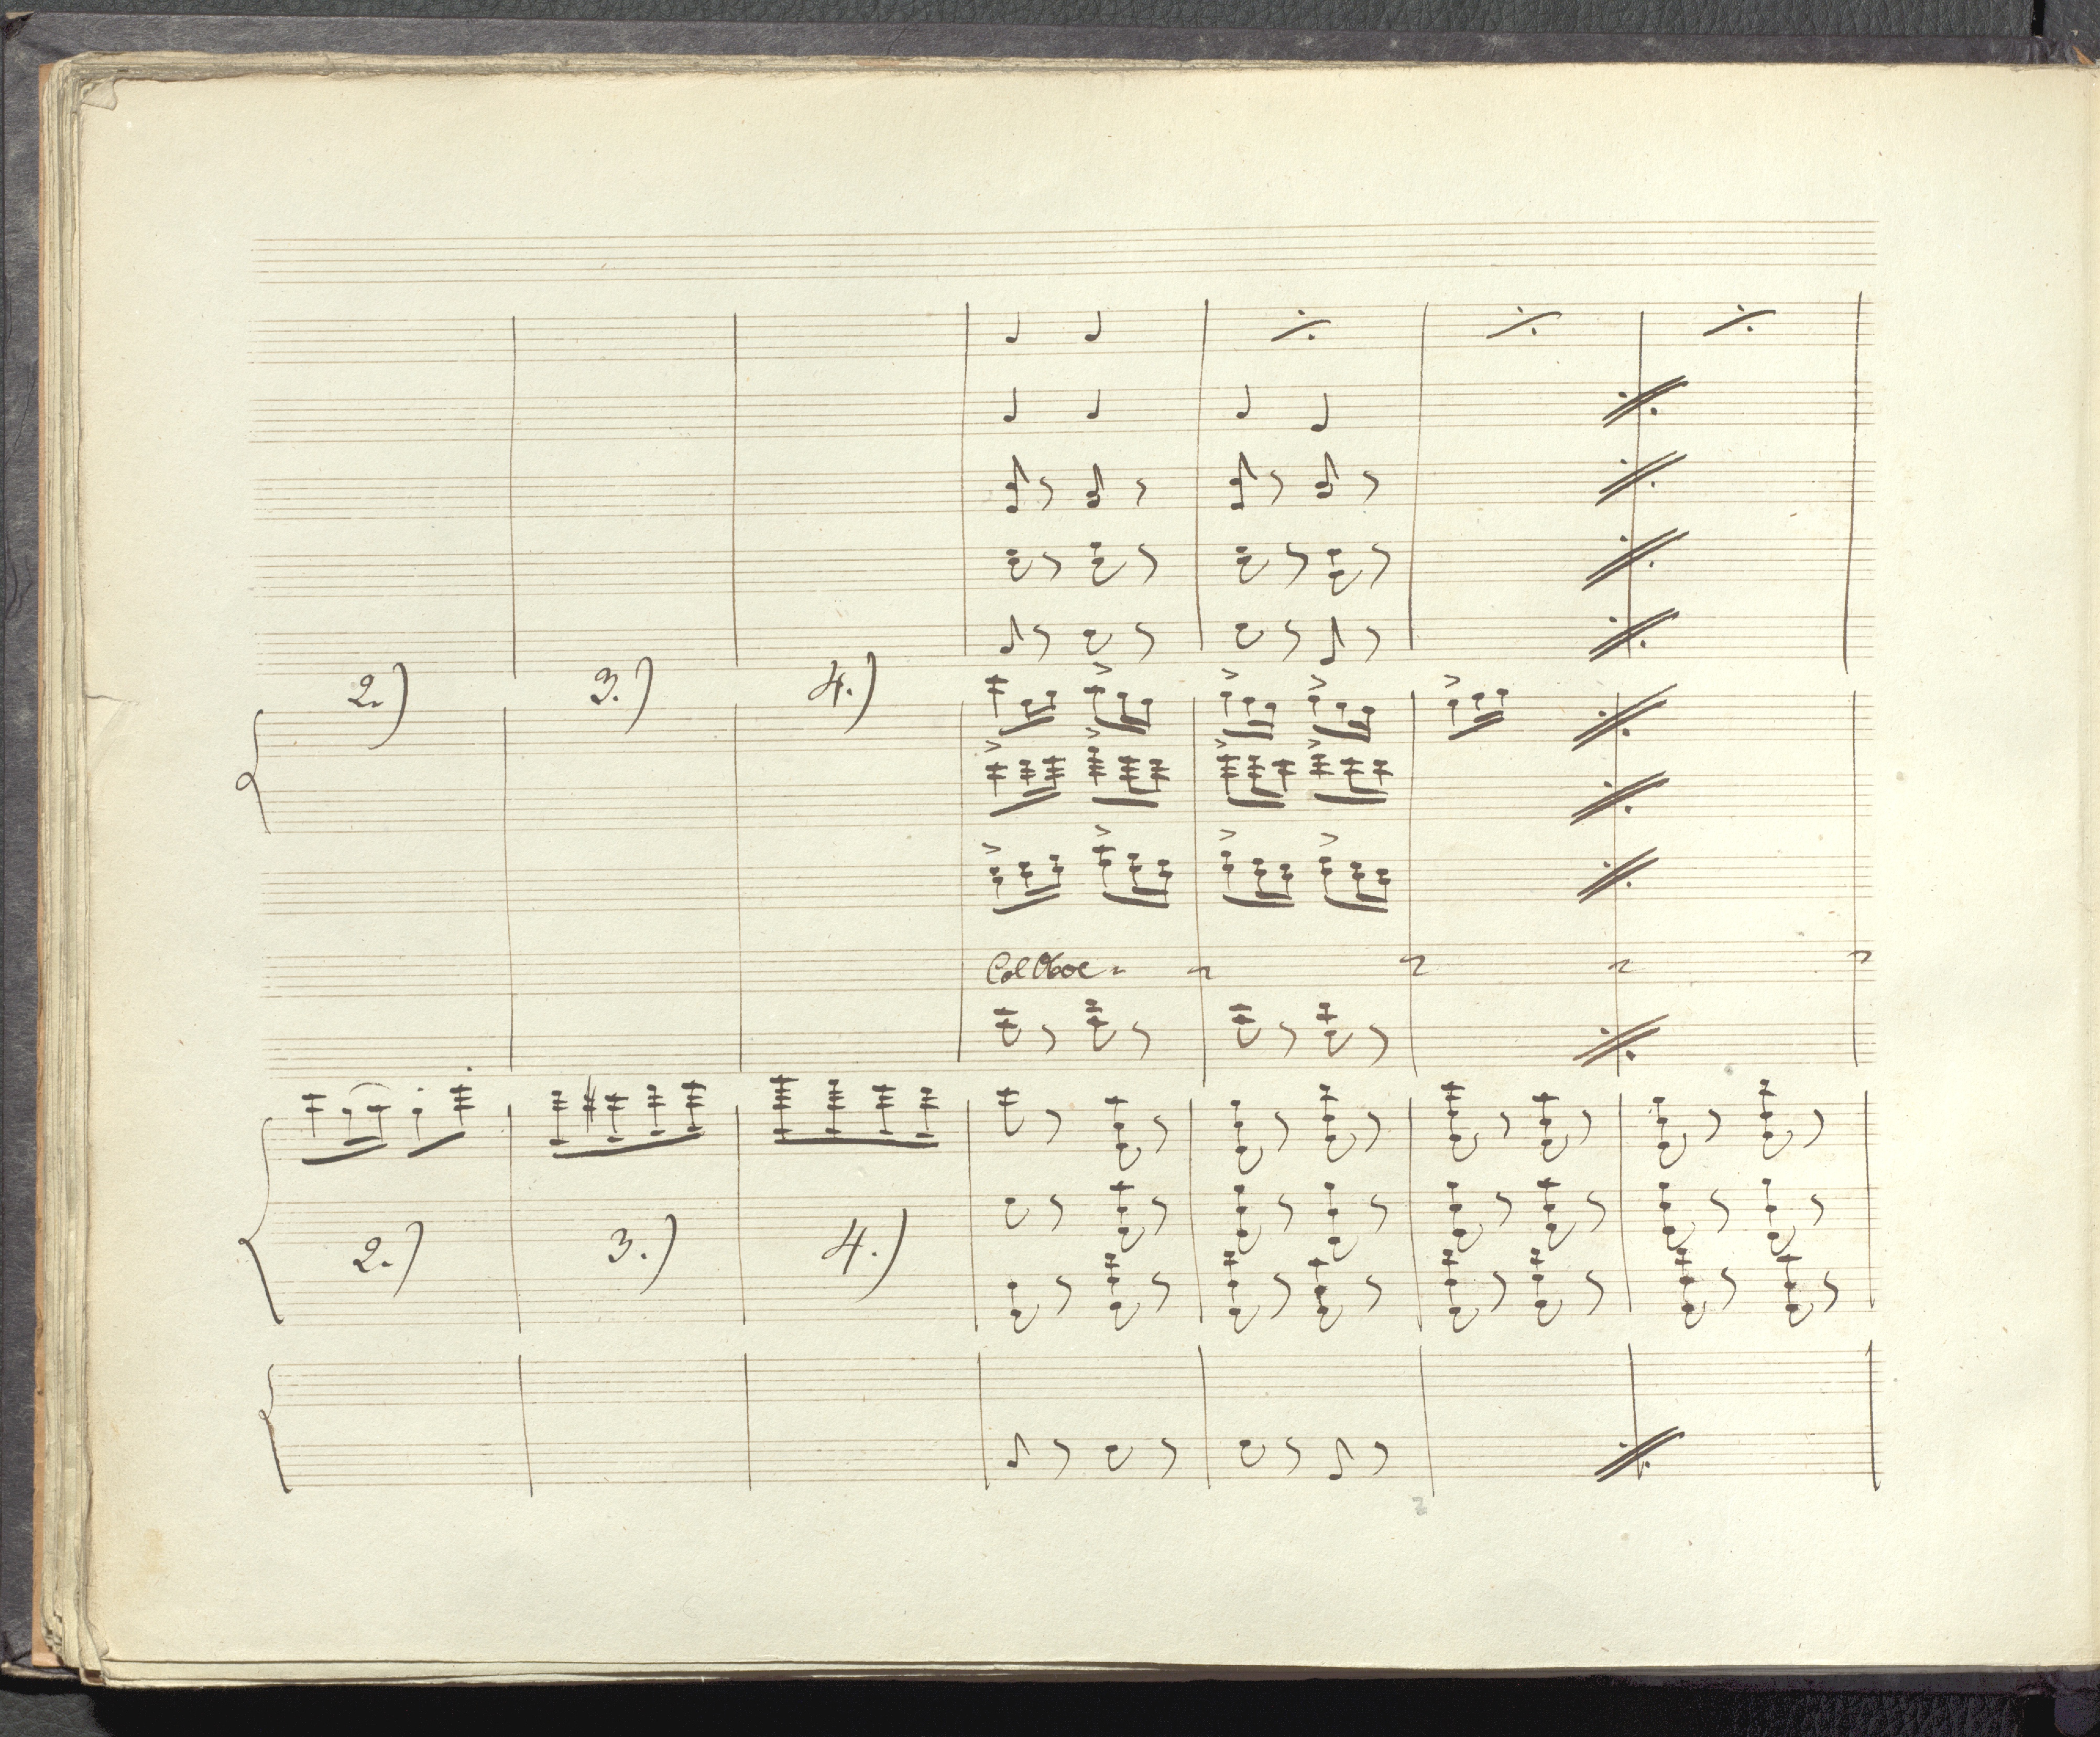 2.) 3.) 4.)
Col Oboe
2.) 3.) 4.)
2